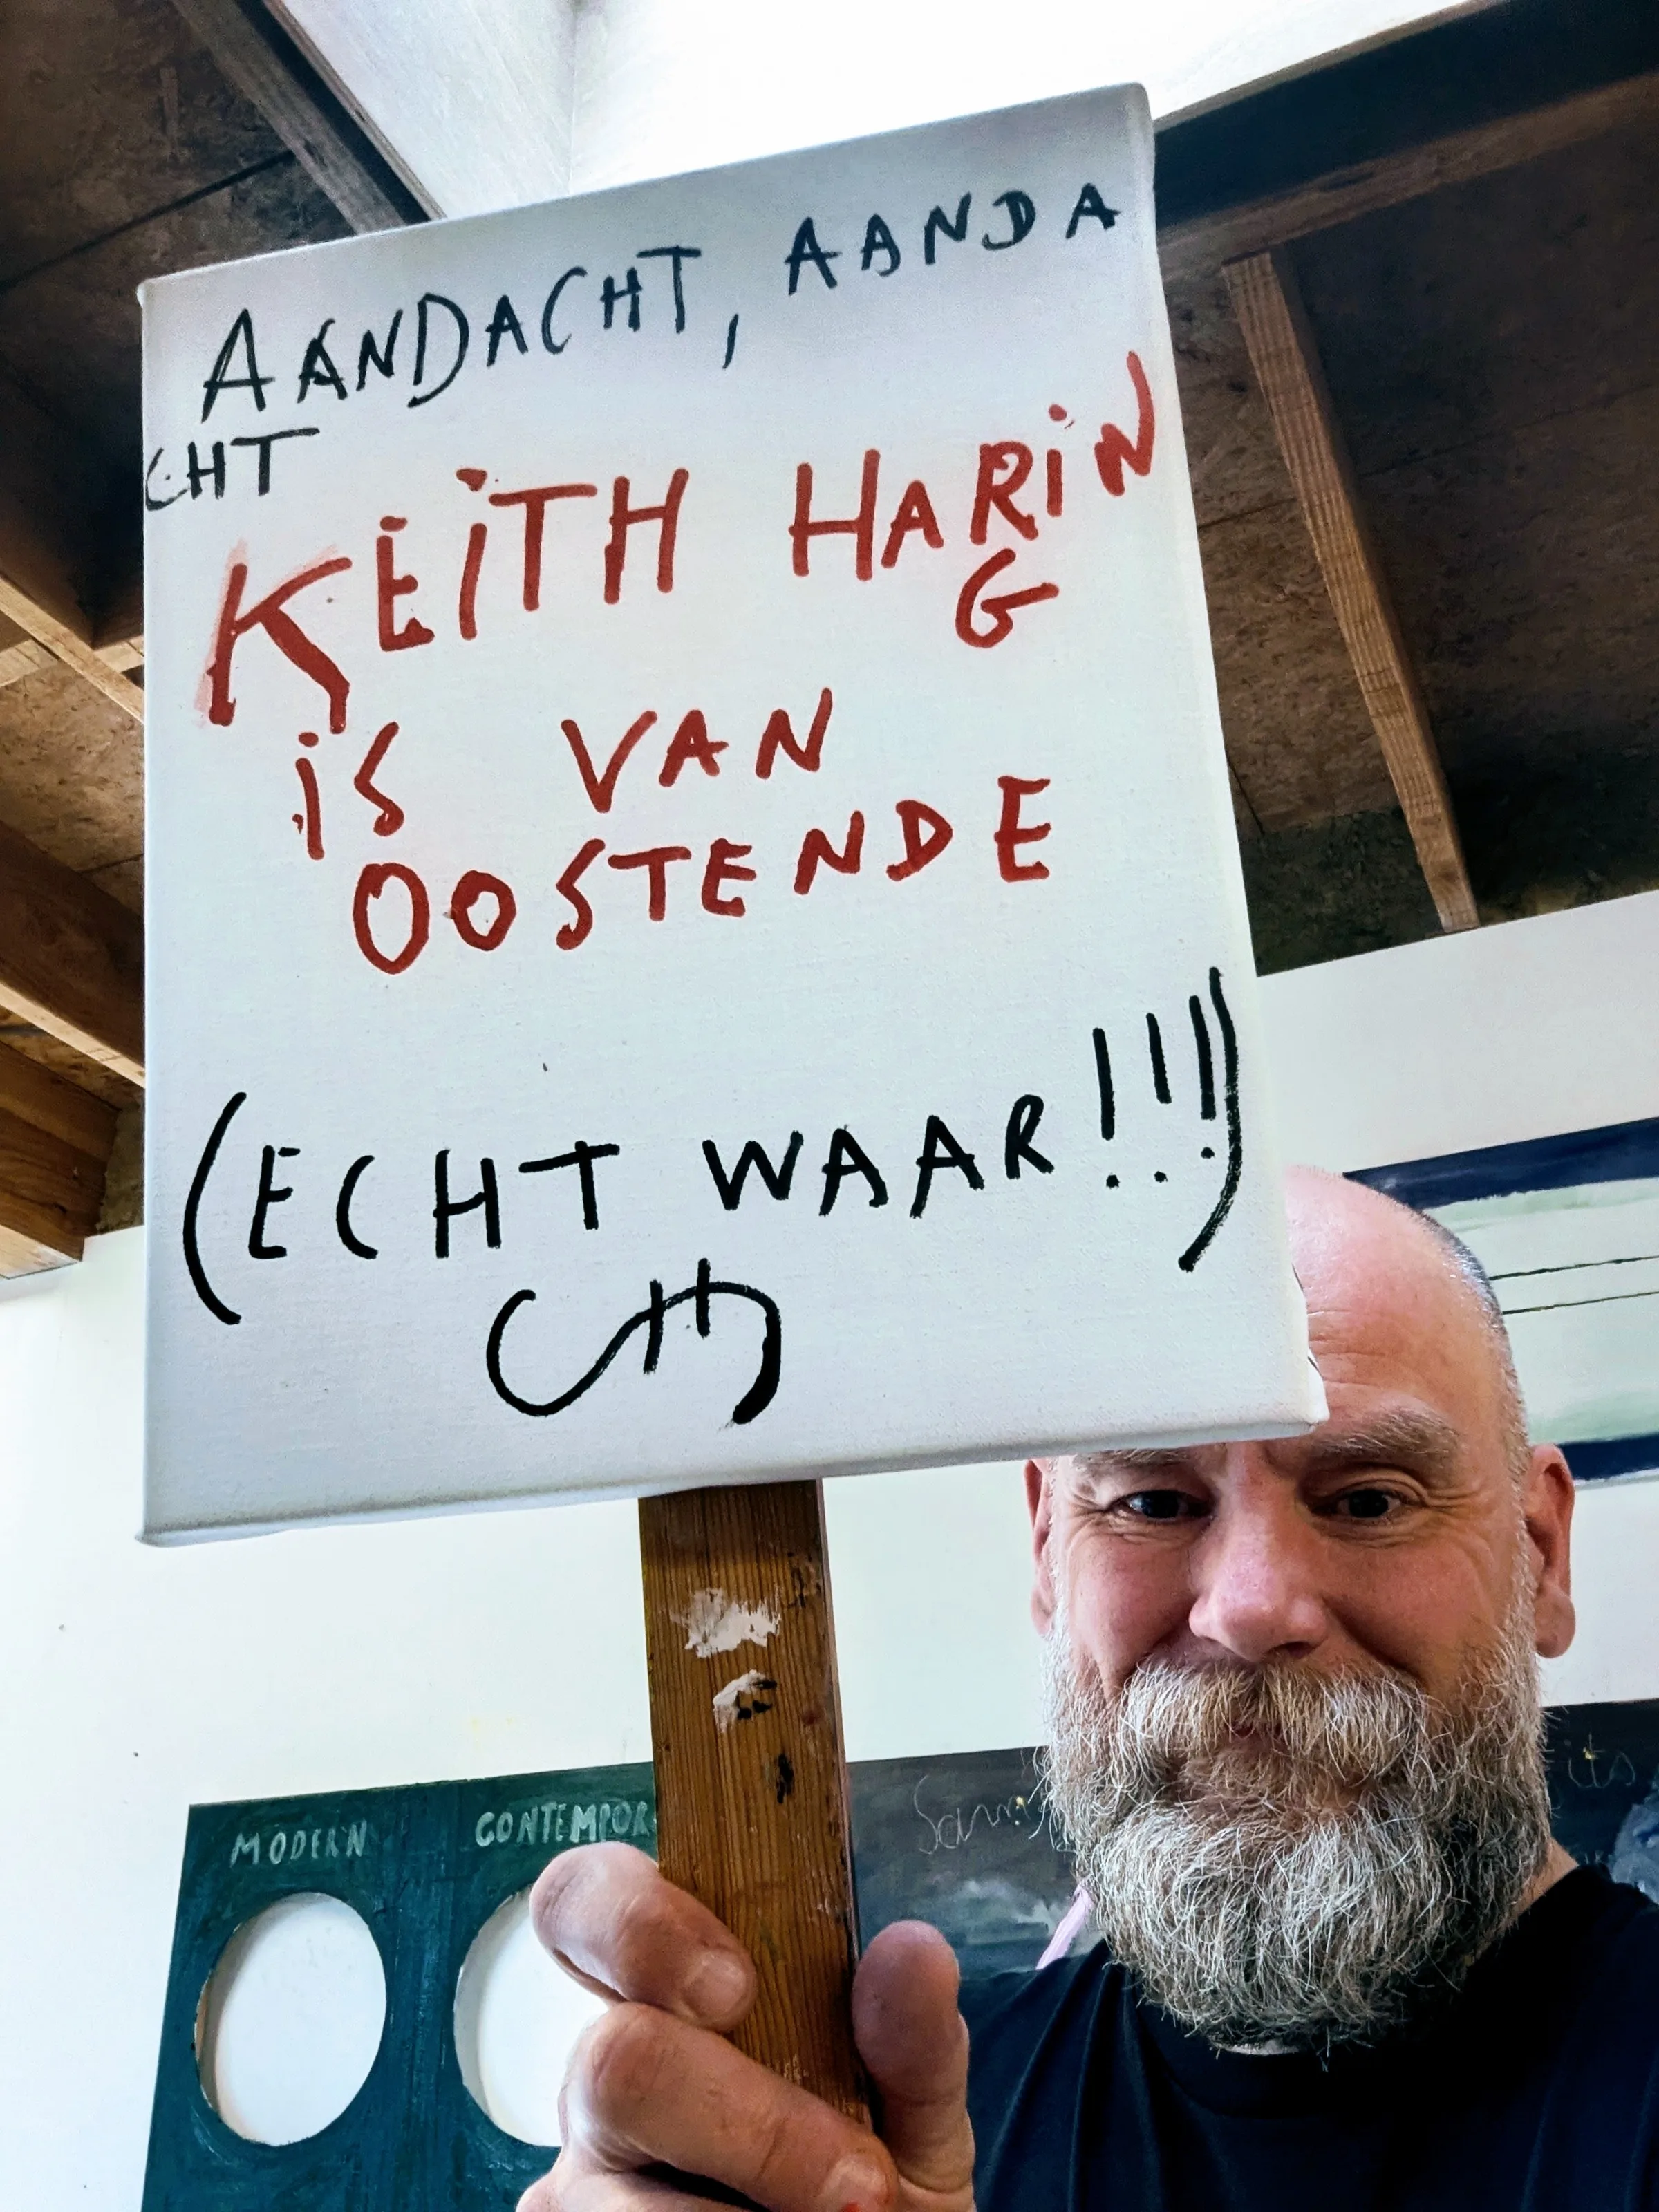 AANDACHT, AANDA
CHT
KEiTH HARiN
G
iS VAN
OOSTENDE
(ECHT WAAR!!!)
MODERN CONTEMPOR